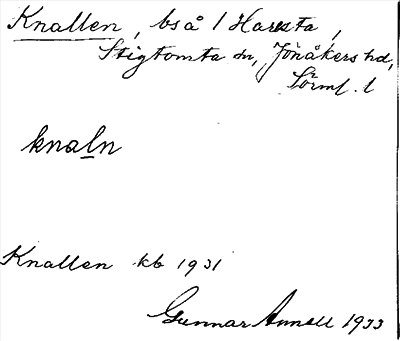 Knallen, bs å 1 Harsta,
Stigtomta sn, Jönåkers hd,
Sörml. l
knaln
Knallen kb 1931
Gunnar 1933